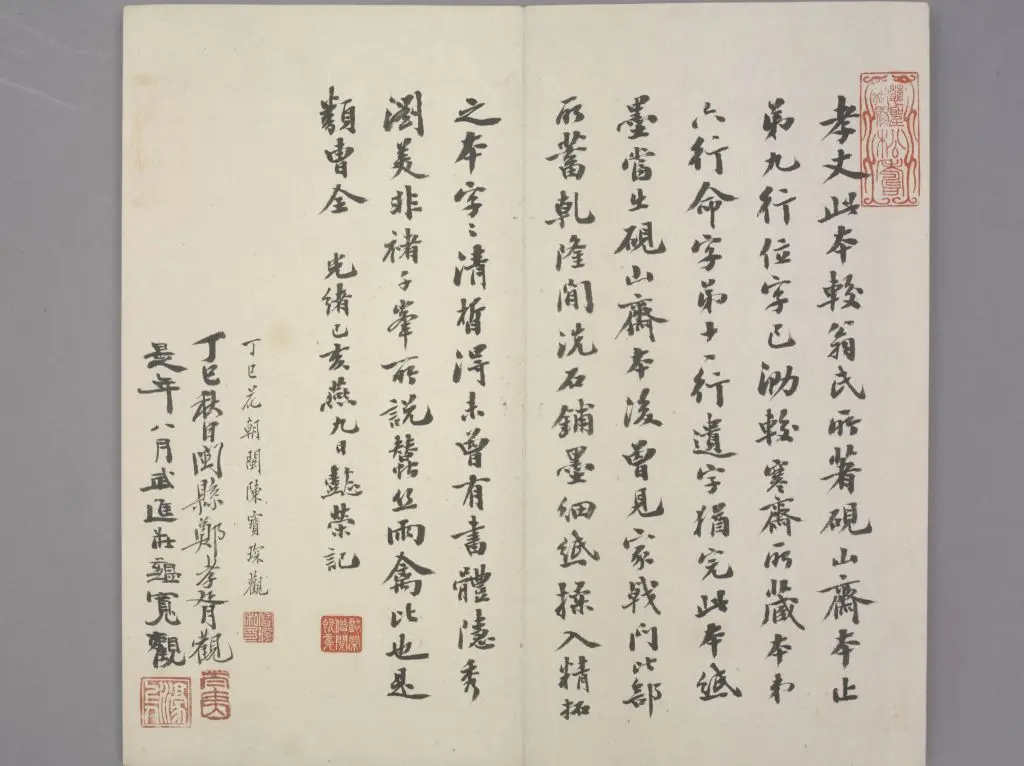 孝丈此本較翁氏所著硯山齋本止
第九行位字已泐較寒齋所藏本弟
六行命字弟十一行遺字猶完此本紙
墨當生硯山齋本後曾見家戟門比部
所蓄乾隆間洗石鋪墨細紙揉入精拓
之本字〻清晳得未曾有書體濾秀
瀏美非褚千峯所說鬚丝雨禽比也是
類曹全 光緒己亥燕九日懿榮記
丁巳花朝閩陳寶琛觀
丁巳秋日閩縣鄭孝胥觀
是年八月武進莊蘊寬觀